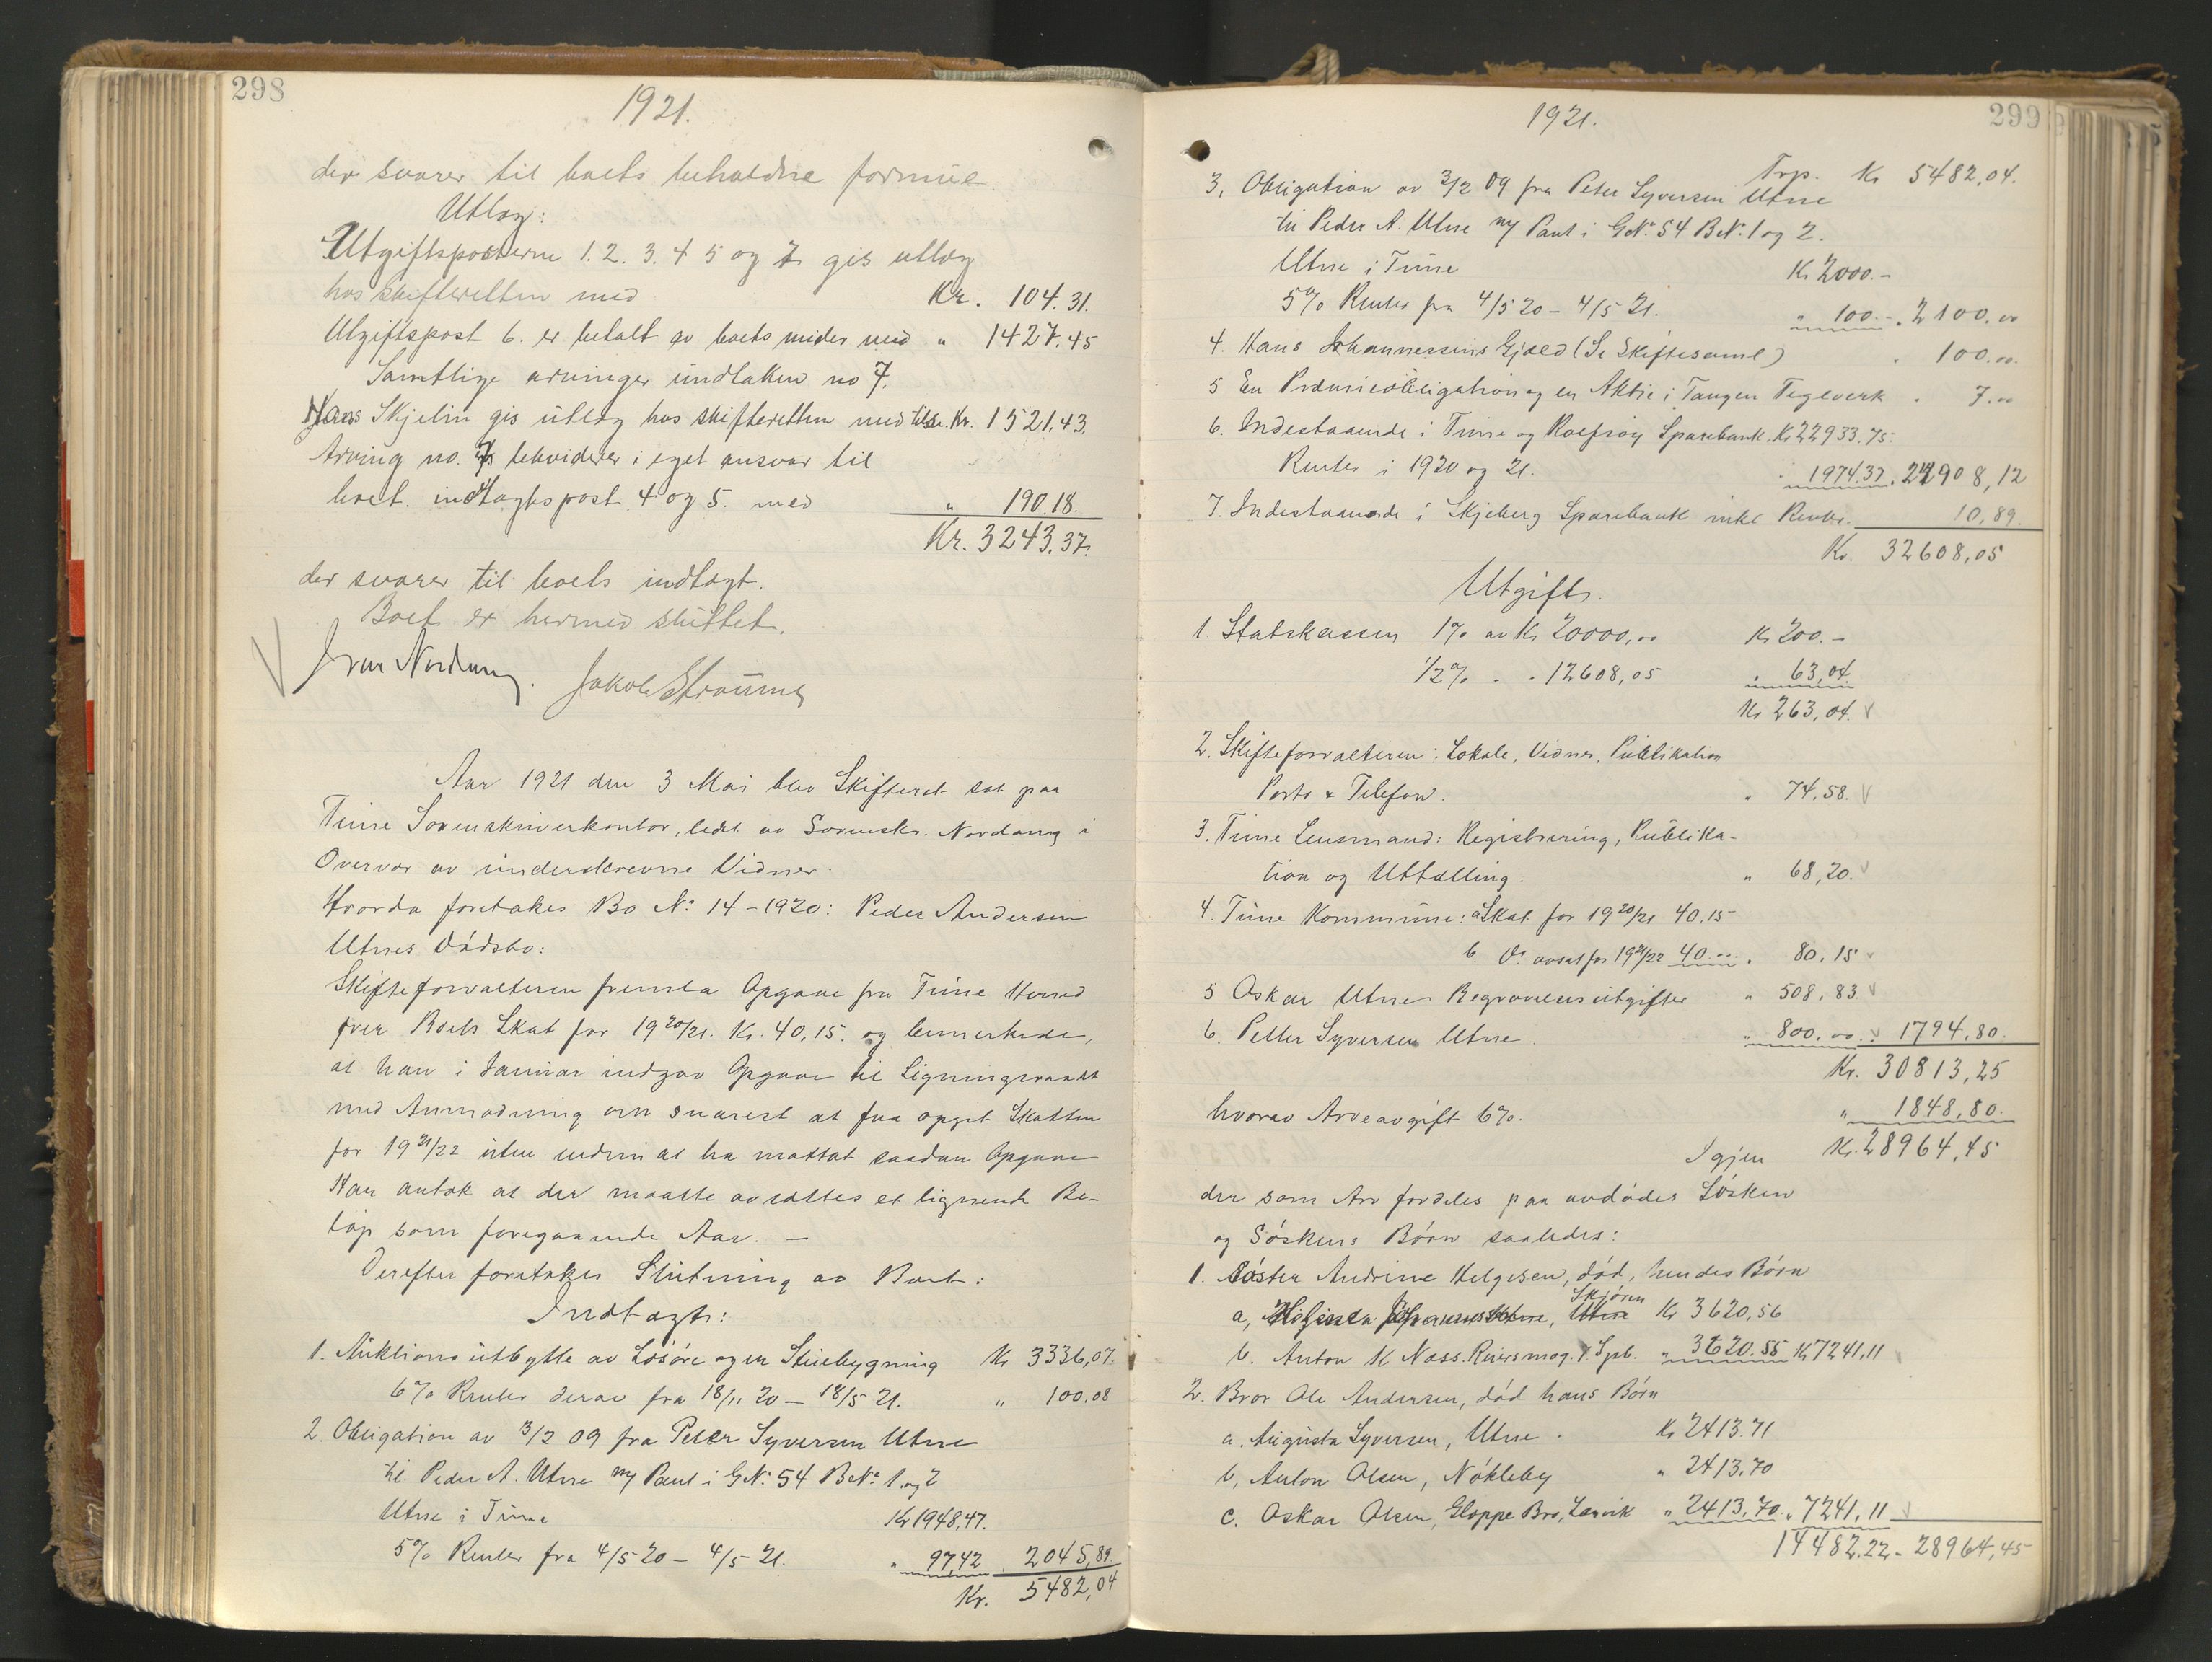 298
1921.
der svarer til boets beholdne formue.
Utlæg:
Utgiftsposterne 1. 2. 3. 4 5 og 7 gis utlæg
hos skifteretten med Kr. 104.31.
Utgiftspost 6. er betalt av boets midler med " 1427.45
Samtlige arvinger undtaken no 7.
Hans Skjelin gis utlæg hos skifteretten med tils. Kr. 1521.43.
Arving no. 7 likviderer i eget ansvar til
boet. indtægtspost 4 og 5. med " 190.18.
Kr. 3243.37.
der svarer til boets indtægt.
Boet er hermed sluttet.
Ivar Nordang. Jakob Strømme
Aar 1921 den 3 Mai blev Skifteret sat paa
Tune Sorenskriverkontor, ledet av Sorenskr. Nordang i
Overvær av underskrevne Vidner.
Hvorda foretokes Bo No 14 - 1920: Peder Andersen
Utnes Dødsbo:
Skifteforvalteren fremla Opgave fra Tune Herred
over Boets Skat for 19 20/21. Kr. 40,15. og bemerkede,
at han i Januar indgav Opgave til Ligningsraadet
med Anmodning om snarest at faa opgit Skatten
for 19 21/22 uten endnu at ha mottat saadan Opgave
Han antok at der maatte avsættes et lignende Be-
løp som foregaaende Aar. —
Derefter foretokes Slutning av Boet:
Indtægt:
1. Auktionsutbytte av Løsøre og en Stuebygning Kr 3336,07.
6% Renter derav fra 18/11 20 — 18/5 21. " 100.08
2. Obligation av 3/2 09 fra Peter Syversen Utne
til Peder A. Utne m/ Pant i GNo 54 BNo 1 og 2
Utne i Tune Kr 1948,47.
5% Renter fra 4/5 20 — 4/5 21. " 97,42 . 2045,89.
Kr. 5482,04
299
1921.
Trp. Kr 5482,04.
3, Obligation av 3/2 09 fra Peter Syversen Utne
til Peder A. Utne m/ Pant i GNo 54 BNo 1 og 2.
Utne i Tune Kr 2000.-
5% Renter fra 4/5 20 – 4/5 21. " 100.- . 2100.00
4. Hans Johannessens Gjæld (Se Skiftesaml) . 100.00.
5 En Præmieobligation og en Aktie i Tangen Teglverk . 7.00
6. Indestaaende i Tune og Rolfsøy Sparebank. Kr 22933.75.
Renter i 1920 og 21. 1974.37 . 24908,12
7. Indestaaende i Skjeberg Sparebank inkl Renter. 10,89.
Kr. 32608,05
Utgift.
1 Statskassen 1% av Kr 20000,00 Kr 200.-
1/2% . . 12608,05 . 63,04.
Kr 263,04. v
2. Skifteforvalteren: Lokale, Vidner, Publikation
Porto & Telefon. . 74.58. v
3. Tune Lensmand: Registrering, Publika-
tion og Uttælling. " 68,20. v
4. Tune Kommune: a Skat for 19 20/21 40.15
b. Do avsat for 19 21/22 40.00 . 80.15 v
5 Oskar Utne Begravelsesutgifter " 508,83 v
6. Petter Syversen Utne " 800,00. v 1794.80.
Kr. 30813,25
hvorav Arveavgift 6%. " 1848,80.
Igjen Kr. 28964,45
der som Arv fordeles paa avdødes Søsken
og Søskens Børn saaledes:
1. Søster Andrine Helgesen, død, hendes Børn
Skjøren
a, Utne Kr 3620,56
b. Anton K Næss. Spb. " 3620.55 Kr 7241,11 v
2. Bror Ole Andersen, død hans Børn
a. Augusta Syversen, Utne . Kr 2413.71
b, Anton Olsen, Nøkleby " 2413,70
c. Oskar Olsen, Gloppe Bro, Lervik " 2413,70. " 7241,11 v
14482.22 - 28964,45